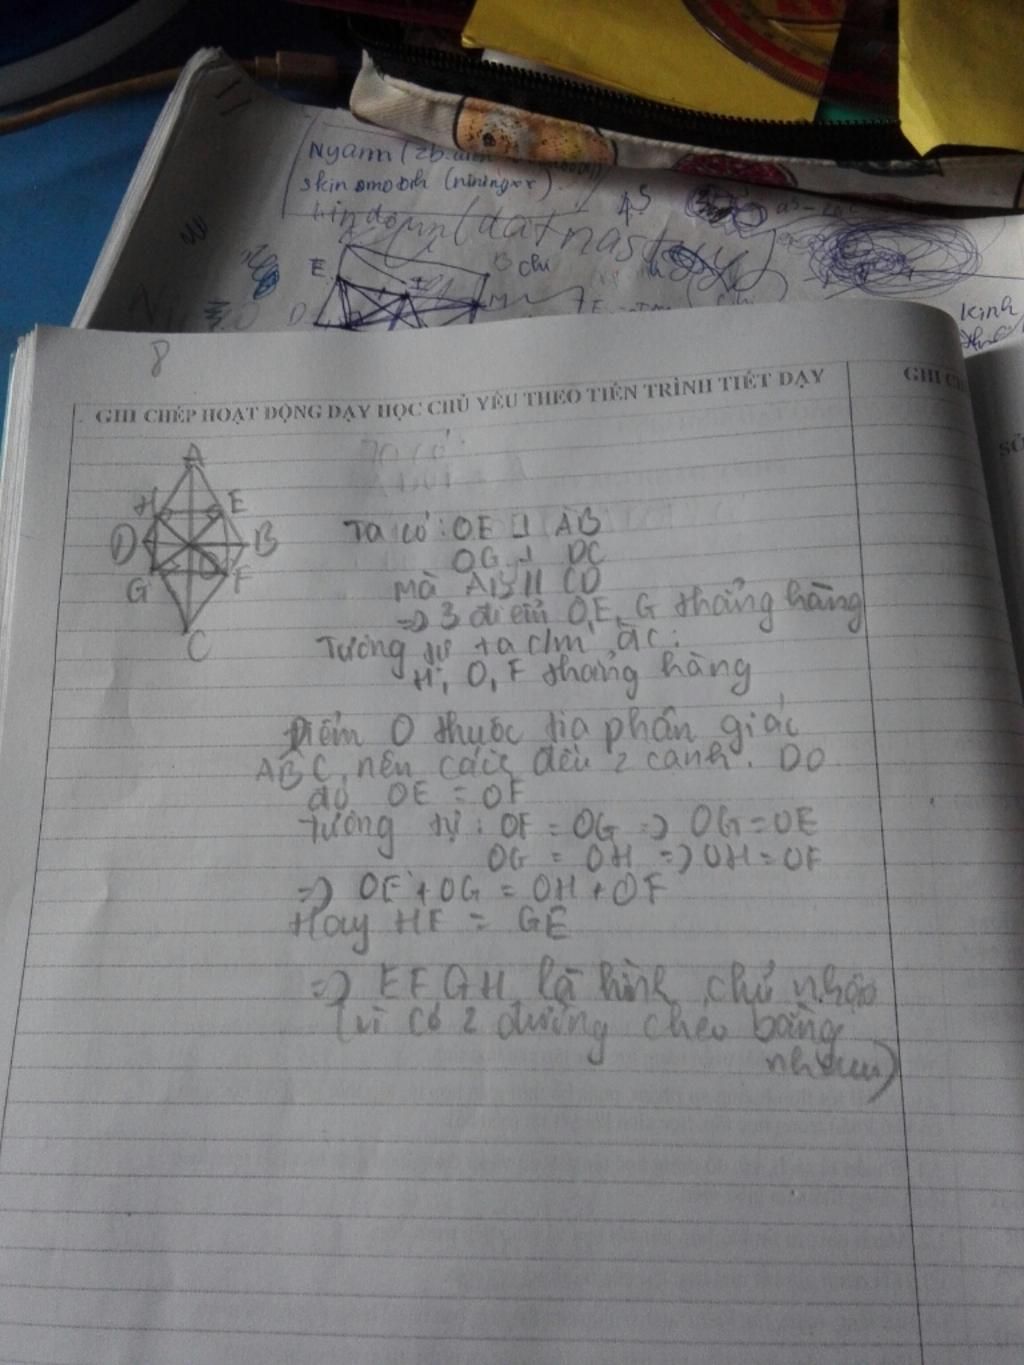 Nyann (zb.
skin smooth (niningxx)
lindown (datnasty
E
B chi
M
D
kinh
8
GHI CHÉP HOẠT ĐỘNG DẠY HỌC CHỦ YẾU THEO TIẾN TRÌNH TIẾT DẠY
GHI
A
H E
D B
O
G F
C
Ta có: OE ⊥ AB
OG ⊥ DC
mà AB // CD
=> 3 điểm O, E, G thẳng hàng
Tương tự ta c/m đc:
H, O, F thẳng hàng
Điểm O thuộc tia phân giác
ABC, nên cách đều 2 cạnh. Do
đó OE = OF
Tương tự: OF = OG => OG = OE
OG = OH => OH = OF
=> OE + OG = OH + OF
Hay HF = GE
=> EFGH là hình chữ nhật
(vì có 2 đường chéo bằng
nhau)